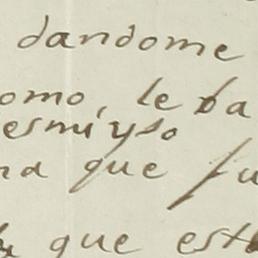 dandome
omo, le da
esmi yso
na que fu
que est